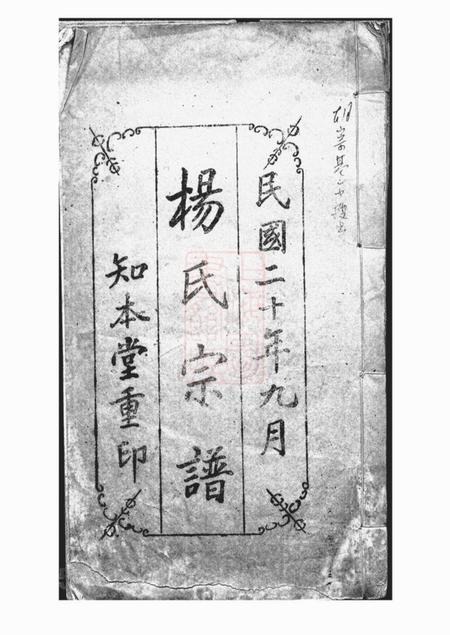 民國二十年九月
楊氏宗譜
知本堂重印